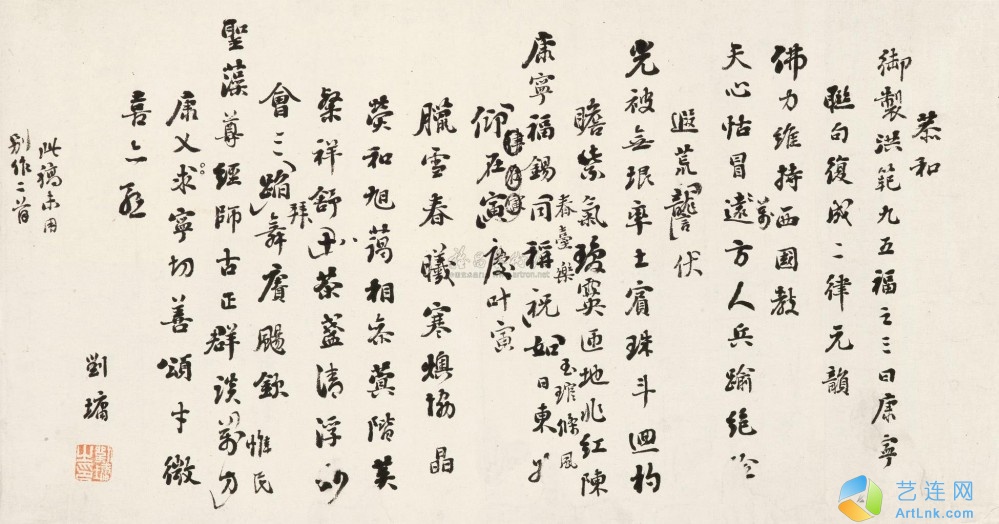 恭和
御製洪範九五福之三曰康寧
聯句復成二律元韻
佛力維持西國教
萬
天心怙冒遠方人兵踰絶
遐荒讋伏
光被無垠率土賓珠斗迴杓
瞻紫氣瓊霙匝地兆紅陳
春臺樂
玉琯條風
康寧福錫同稱祝如日東
仰在寅慶叶寅
臘雪春曦寒燠協晶
熒和旭藹相亲蓂階荚
粲祥舒八茶盞清浮
拜
會三蹈舞賡颺欽
惟民
聖藻尊經師古正群談萬方
康乂求寧切善頌才微
喜之
此稿未用
別作二首
劉墉
艺连网
ArtLnk.com